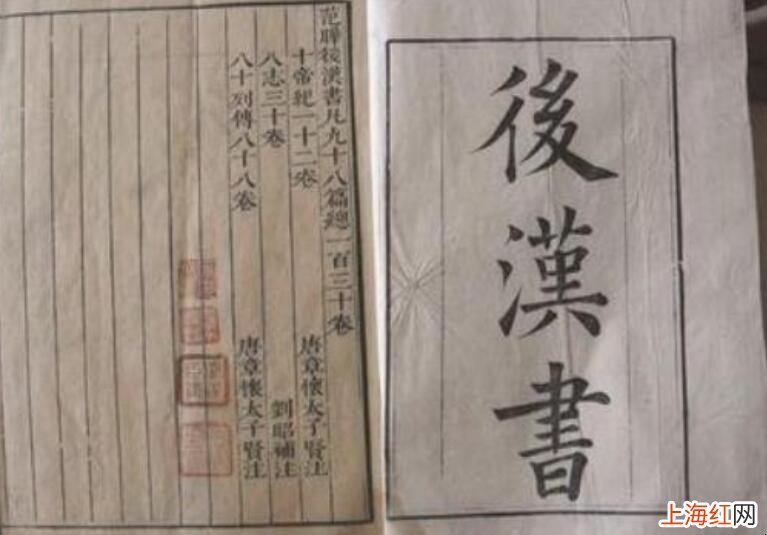 後漢書
范曄後漢書凡九十八篇總一百三十卷
十帝紀一十二卷 唐章懷太子賢注
八志三十卷 劉昭補注
八十列傳八十八卷 唐章懷太子賢注
上海红网